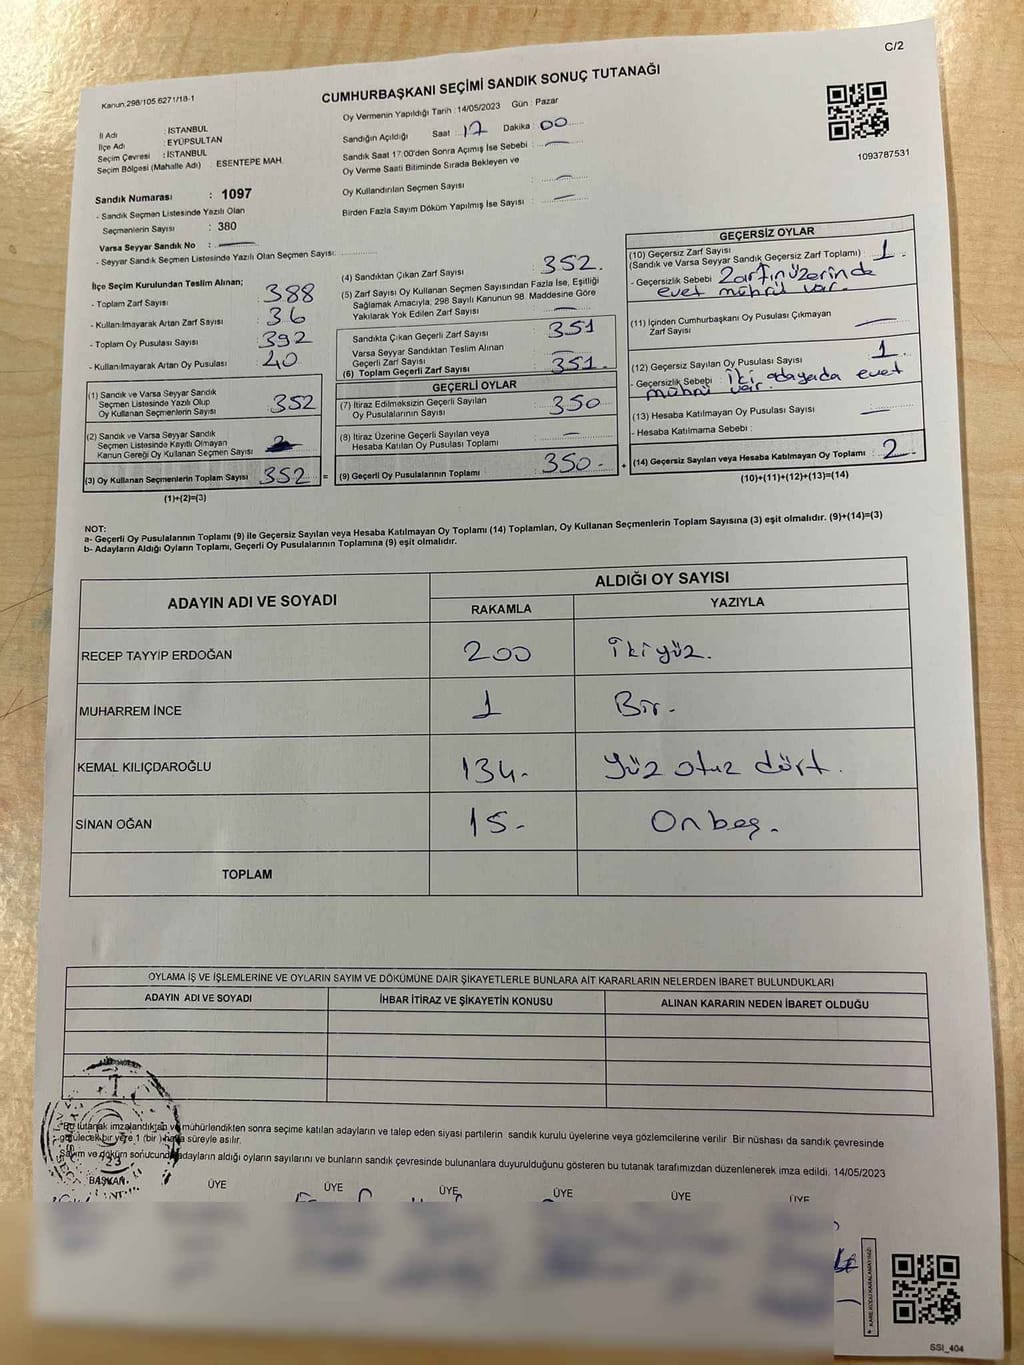 C/2
Kanun.298/105.6271/18-1
CUMHURBAŞKANI SEÇİMİ SANDIK SONUÇ TUTANAĞI
İl Adı : İSTANBUL
İlçe Adı : EYÜPSULTAN
Seçim Çevresi : İSTANBUL
Seçim Bölgesi (Mahalle Adı) : ESENTEPE MAH.
Sandık Numarası : 1097
- Sandık Seçmen Listesinde Yazılı Olan
Seçmenlerin Sayısı : 380
Varsa Seyyar Sandık No :
- Seyyar Sandık Seçmen Listesinde Yazılı Olan Seçmen Sayısı:
Oy Vermenin Yapıldığı Tarih : 14/05/2023 Gün : Pazar
Sandığın Açıldığı Saat : 17 Dakika : 00
Sandık Saat 17:00'den Sonra Açımış İse Sebebi :
Oy Verme Saati Bitiminde Sırada Bekleyen ve
Oy Kullandırılan Seçmen Sayısı :
Birden Fazla Sayım Döküm Yapılmış İse Sayısı :
1093787531
İlçe Seçim Kurulundan Teslim Alınan;
- Toplam Zarf Sayısı : 388
- Kullanılmayarak Artan Zarf Sayısı : 36
- Toplam Oy Pusulası Sayısı : 392
- Kullanılmayarak Artan Oy Pusulası : 40
(1) Sandık ve Varsa Seyyar Sandık
Seçmen Listesinde Yazılı Olup
Oy Kullanan Seçmenlerin Sayısı : 352
(2) Sandık ve Varsa Seyyar Sandık
Seçmen Listesinde Kayıtlı Olmayan
Kanun Gereği Oy Kullanan Seçmen Sayısı :
(3) Oy Kullanan Seçmenlerin Toplam Sayısı : 352 =
(1)+(2)=(3)
(4) Sandıktan Çıkan Zarf Sayısı : 352.
(5) Zarf Sayısı Oy Kullanan Seçmen Sayısından Fazla İse, Eşitliği
Sağlamak Amacıyla; 298 Sayılı Kanunun 98. Maddesine Göre
Yakılarak Yok Edilen Zarf Sayısı :
Sandıkta Çıkan Geçerli Zarf Sayısı : 351
Varsa Seyyar Sandıktan Teslim Alınan
Geçerli Zarf Sayısı :
(6) Toplam Geçerli Zarf Sayısı : 351.
GEÇERLİ OYLAR
(7) İtiraz Edilmeksizin Geçerli Sayılan
Oy Pusulalarının Sayısı : 350
(8) İtiraz Üzerine Geçerli Sayılan veya
Hesaba Katılan Oy Pusulası Toplamı :
(9) Geçerli Oy Pusulalarının Toplamı : 350. +
GEÇERSİZ OYLAR
(10) Geçersiz Zarf Sayısı
(Sandık ve Varsa Seyyar Sandık Geçersiz Zarf Toplamı) : 1.
- Geçersizlik Sebebi : Zarfın üzerinde
evet mühürü var.
(11) İçinden Cumhurbaşkanı Oy Pusulası Çıkmayan
Zarf Sayısı :
(12) Geçersiz Sayılan Oy Pusulası Sayısı : 1.
- Geçersizlik Sebebi : İki adayada evet
mührü var.
(13) Hesaba Katılmayan Oy Pusulası Sayısı :
- Hesaba Katılmama Sebebi :
(14) Geçersiz Sayılan veya Hesaba Katılmayan Oy Toplamı : 2.
(10)+(11)+(12)+(13)=(14)
NOT:
a- Geçerli Oy Pusulalarının Toplamı (9) ile Geçersiz Sayılan veya Hesaba Katılmayan Oy Toplamı (14) Toplamları, Oy Kullanan Seçmenlerin Toplam Sayısına (3) eşit olmalıdır. (9)+(14)=(3)
b- Adayların Aldığı Oyların Toplamı, Geçerli Oy Pusulalarının Toplamına (9) eşit olmalıdır.
ADAYIN ADI VE SOYADI
ALDIĞI OY SAYISI
RAKAMLA YAZIYLA
RECEP TAYYİP ERDOĞAN 200 İkiyüz.
MUHARREM İNCE 1 Bir.
KEMAL KILIÇDAROĞLU 134. Yüz otuz dört.
SİNAN OĞAN 15. Onbeş.
TOPLAM
OYLAMA İŞ VE İŞLEMLERİNE VE OYLARIN SAYIM VE DÖKÜMÜNE DAİR ŞİKAYETLERLE BUNLARA AİT KARARLARIN NELERDEN İBARET BULUNDUKLARI
ADAYIN ADI VE SOYADI İHBAR İTİRAZ VE ŞİKAYETİN KONUSU ALINAN KARARIN NEDEN İBARET OLDUĞU
*Bu tutanak imzalandıktan ve mühürlendikten sonra seçime katılan adayların ve talep eden siyasi partilerin sandık kurulu üyelerine veya gözlemcilerine verilir. Bir nüshası da sandık çevresinde
görülecek bir yere 1 (bir) hafta süreyle asılır.
Sayım ve döküm sonucunda adayların aldığı oyların sayılarını ve bunların sandık çevresinde bulunanlara duyurulduğunu gösteren bu tutanak tarafımızdan düzenlenerek imza edildi. 14/05/2023
BAŞKAN ÜYE ÜYE ÜYE ÜYE ÜYE ÜYE
T.C.
23
* KARE KODU KARALAMAYINIZ!
SSI_404